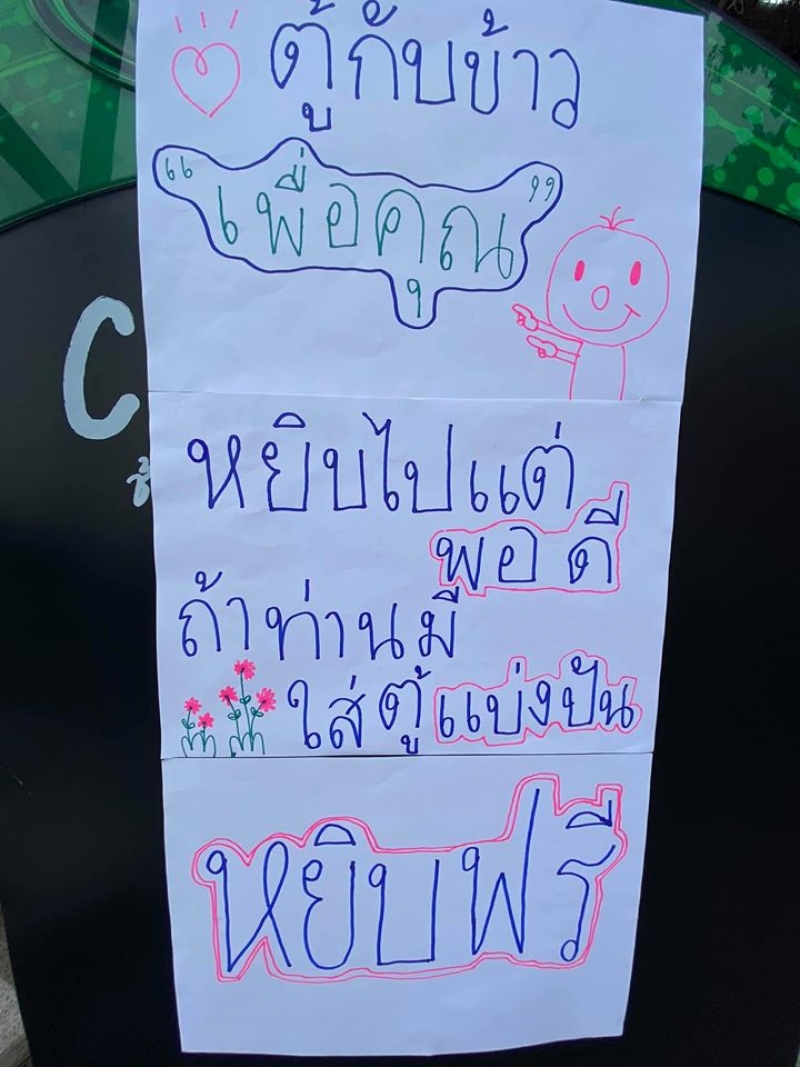 ตู้กับข้าว
“เพื่อคุณ”
หยิบไปแต่
พอดี
ถ้าท่านมี
ใส่ตู้แบ่งปัน
หยิบฟรี
C